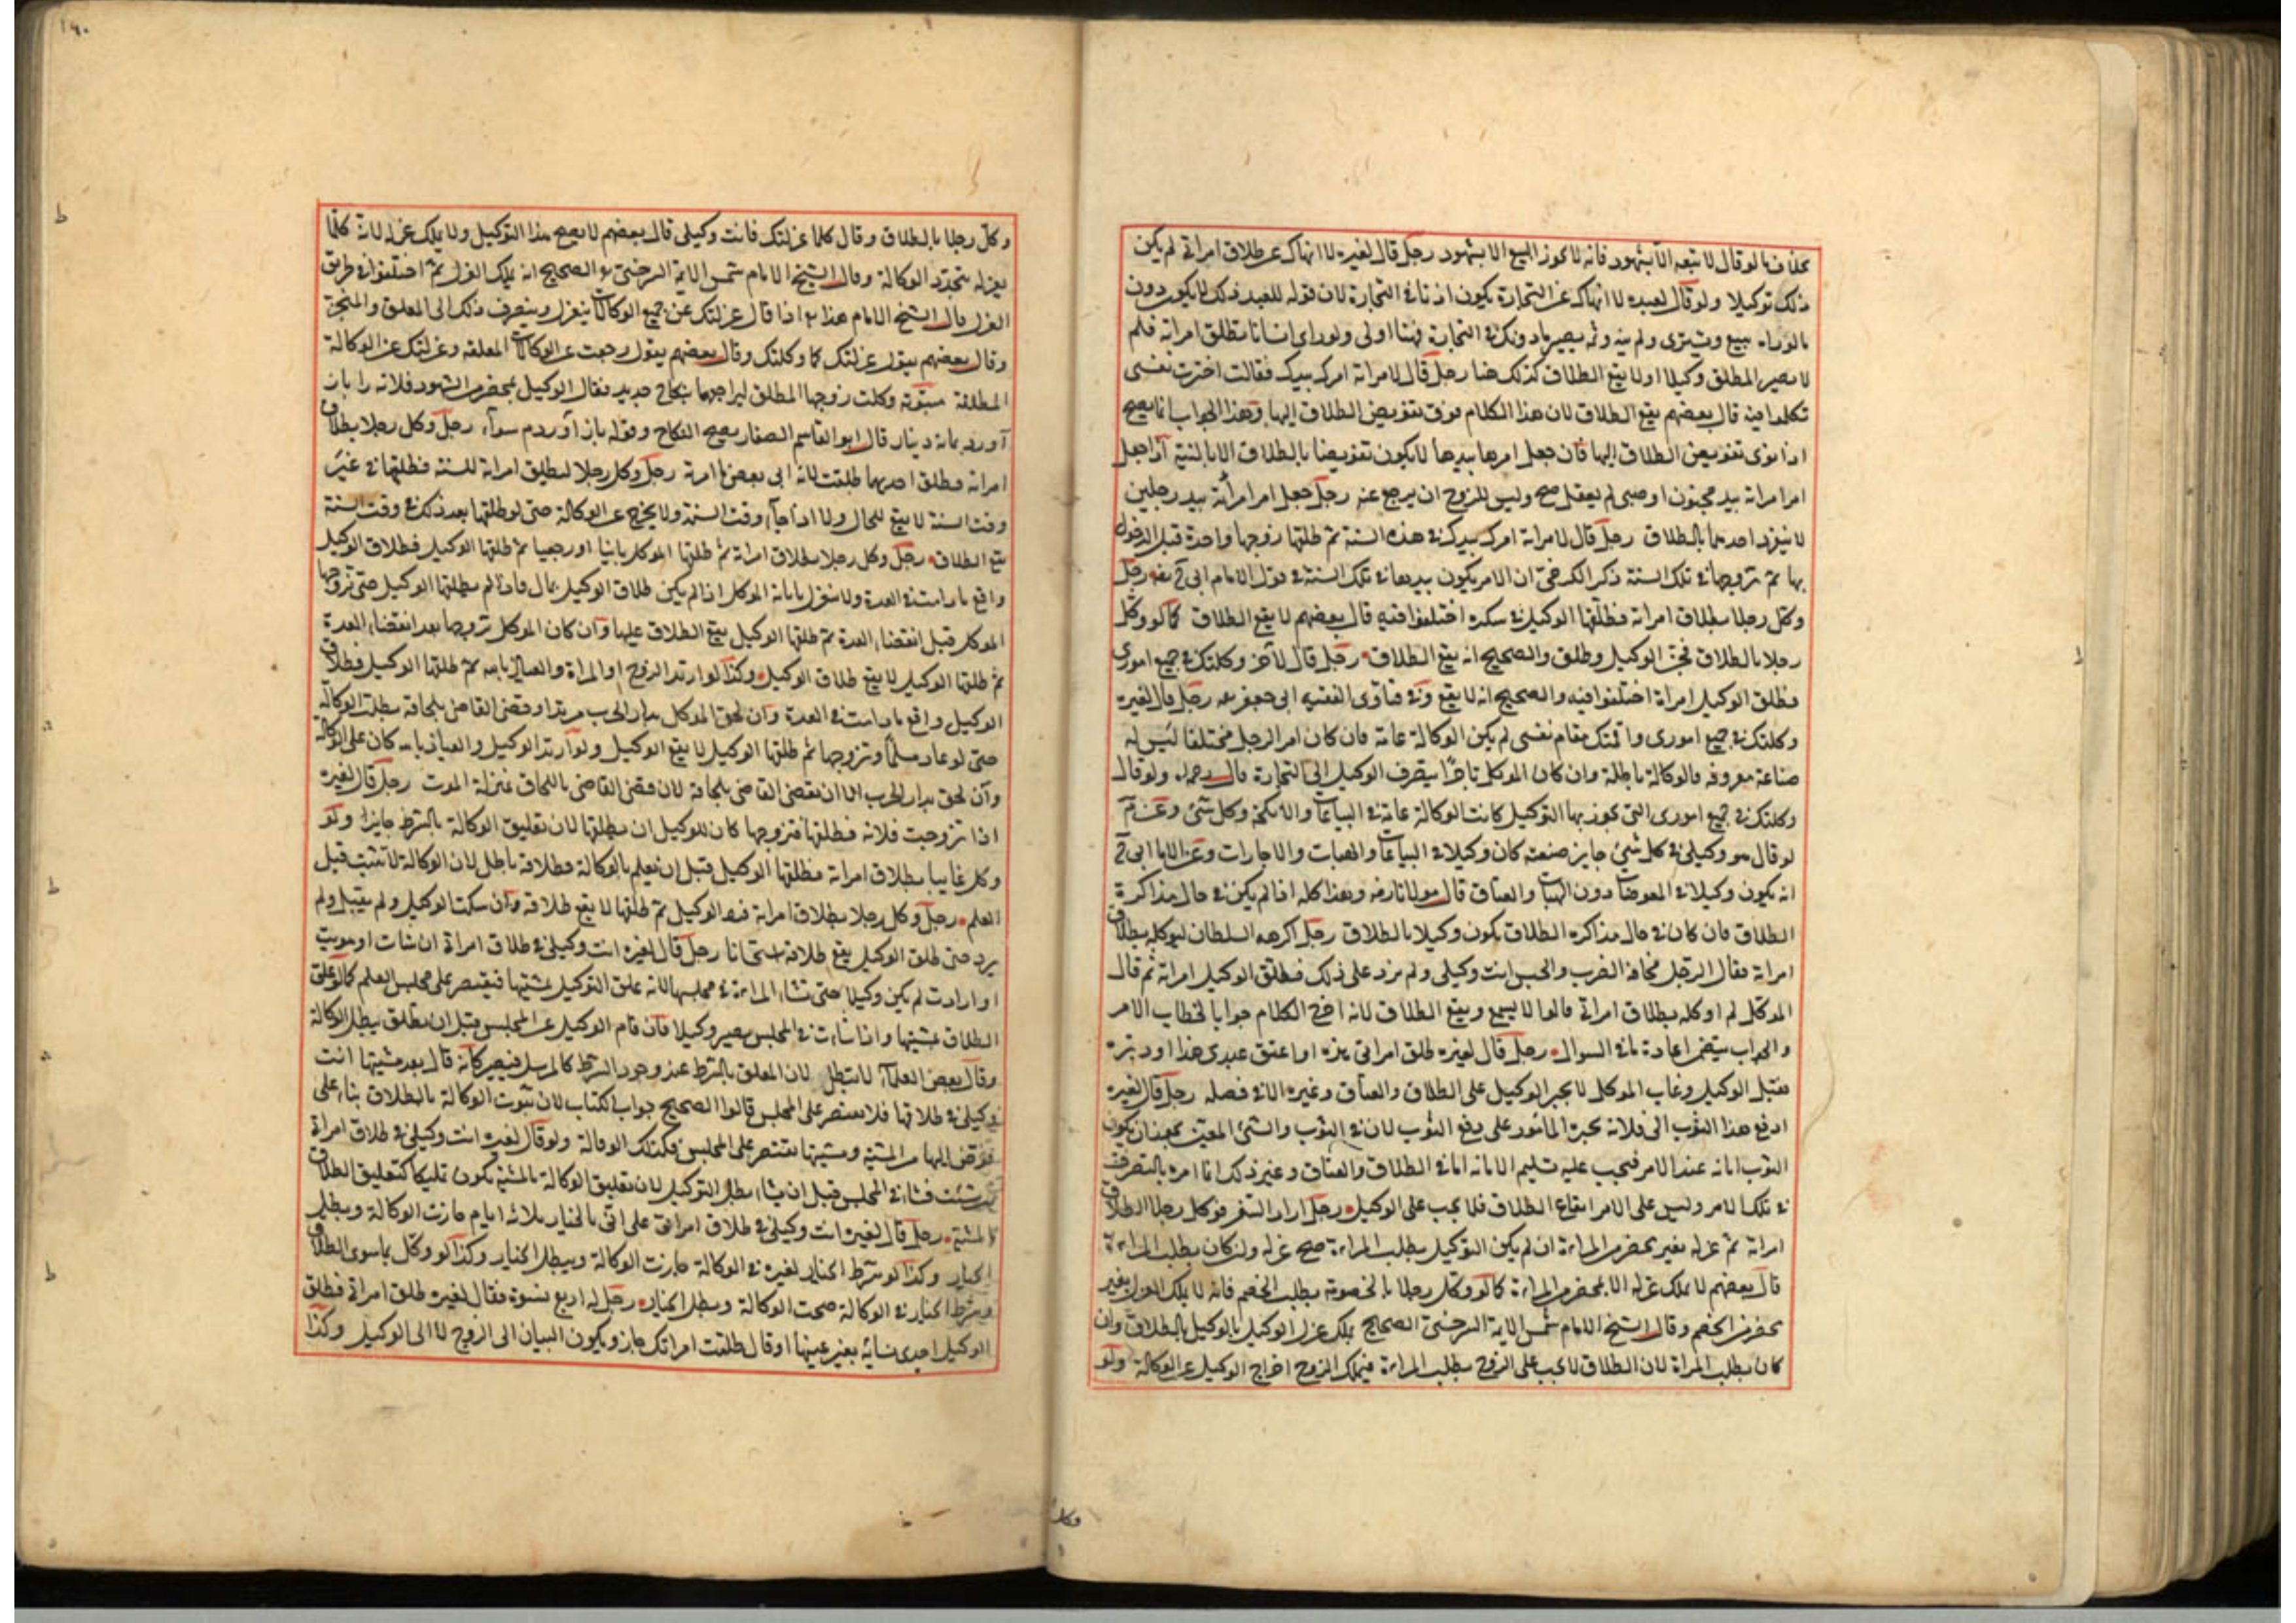 بخلاف ما لو قال لا تبعه الا بشهود فانه لا يجوز البيع الا بشهود رجل قال لغيره لا انهاك عن طلاق امراتى لم يكن
ذلك توكيلا ولو قال لعبده لا انهاك عن التجارة يكون اذنا فى التجارة لان قوله للعبد ذلك لا يكون دون
يبيع ويشترى ولم ينهه ثمه يصير ماذونا فى التجارة فهنا اولى ولو راى انسانا يطلق امراته فلم
لا يصير المطلق وكيلا ولا يقع الطلاق كذلك هنا رجل قال لامراته امرك بيدك فقالت اخترت نفسى
تكلموا فيه قال بعضهم يقع الطلاق لان هذا الكلام فوق تفويض الطلاق اليها وهذا الجواب انما يصح
اذا نوى تفويض الطلاق اليها فان جعل امرها بيدها لا يكون تفويضا بالطلاق الا بالنية اذا جعل
امر امراته بيد مجنون او صبى لم يعقل صح وليس للزوج ان يرجع عنه رجل جعل امر امراته بيد رجلين
لا ينفرد احدهما بالطلاق رجل قال لامراته امرك بيدك فى هذه السنة ثم طلقها زوجها واحدة قبل الدخول
بها ثم تزوجها فى تلك السنة ذكر الكرخى ان الامر يكون بيدها فى تلك السنة فى قول الامام ابى ح رجل
وكل رجلا بطلاق امراته فطلقها الوكيل فى سكره اختلفوا فيه قال بعضهم لا يقع الطلاق كما لو وكل
رجلا بالطلاق فجن الوكيل وطلق والصحيح انه يقع الطلاق رجل قال لآخر وكلتك فى جميع امورى
فطلق الوكيل امراة اختلفوا فيه والصحيح انه لا يقع وفى فتاوى الفقيه ابى جعفر رجل قال لغيره
وكلتك فى جميع امورى واقمتك مقام نفسى لم يكن الوكالة عامة فان كان امر الرجل مختلفا ليس له
صناعة معروفة فالوكالة باطلة وان كان الموكل تاجرا يتصرف الوكيل الى التجارة قال رحمه ولو قال
وكلتك فى جميع امورى التى يجوز بها التوكيل كانت الوكالة عامة فى البياعات والانكحة وكل شئ وعن م
لو قال هو وكيلى فى كل شئ جايز صنعته كان وكيلا فى البياعات والهبات والاجارات وعن الامام ابى ح
انه يكون وكيلا فى المعوضات دون الهبات والعتاق قال مولانا رض وهذا كله اذا لم يكن فى حال مذاكرة
الطلاق فان كان فى حال مذاكره الطلاق يكون وكيلا بالطلاق رجل اكرهه السلطان ليوكله بطلاق
امراته فقال الرجل مخافة الضرب والحبس انت وكيلى ولم يزد على ذلك فطلق الوكيل امراته ثم قال
الموكل لم اوكله بطلاق امراتى قالوا لا يسمع ويقع الطلاق لانه اخرج الكلام جوابا لخطاب الامر
والجواب يتضمن اعادة ما فى السوال رجل قال لغيره طلق امراتى هذه او اعتق عبدى هذا او دبره
فقبل الوكيل وغاب الموكل لا يجبر الوكيل على الطلاق والعتاق وغيره الا فى فصله رجل قال لغيره
ادفع هذا الثوب الى فلان يجبر المامور على دفع الثوب لان فى الثوب والشئ المعين يكون
الثوب امانة عند الامر فيجب عليه تسليم الامانة اما فى الطلاق والعتاق وغير ذلك انما امره بالتصرف
فى تلك الامر وليس على الامر ايقاع الطلاق فلا يجب على الوكيل رجل اراد السفر فوكل رجلا بطلاق
امراته ثم عزله بغير محضر من المراة ان لم يكن التوكيل بطلب المراة صح عزله وان كان بطلب المراة
قال بعضهم لا يملك عزله الا بمحضر من المراة كما لو وكل رجلا بالخصومة بطلب الخصم فانه لا يملك العزل بغير
محضر من الخصم وقال الشيخ الامام شمس الايمة السرخسى الصحيح يملك عزل الوكيل بالطلاق وان
كان بطلب المراة لان الطلاق لا يجب على الزوج بطلب المراة فيملك الزوج اخراج الوكيل عن الوكالة ولو
١٩٠
وكل رجلا بالطلاق وقال كلما عزلتك فانت وكيلى قال بعضهم لا يصح هذا التوكيل ولا يملك عزله لانه كلما
يعزله تتجدد الوكالة وقال الشيخ الامام شمس الايمة السرخسى الصحيح انه يملك العزل ثم اختلفوا فى طريق
العزل قال الشيخ الامام هذا اذا قال عزلتك عن جميع الوكالات ينعزل وينصرف ذلك الى المعلق والمنجز
وقال بعضهم يقول عزلتك كما وكلتك وقال بعضهم يقول رجعت عن الوكالات المعلقه وعزلتك عن الوكالة
المطلقة مبتوتة وكلت زوجها المطلق ليراجعها بنكاح جديد فقال الوكيل بمحضر من الشهود فلانه را باز
آوردم بمايه دينار قال ابو القاسم الصفار يصح النكاح وقوله باز آوردم سواء رجل وكل رجلا بطلاق
امراته فطلق احديهما رجل وكل رجلا ليطلق امراته للسنة فطلقها فى غير
وقت السنة لا يقع للحال ولا اذا جاء وقت السنة ولا يخرج عن الوكالة حتى لو طلقها بعد ذلك فى وقت السنة
يقع الطلاق رجل وكل رجلا بطلاق امراته ثم طلقها الموكل باينا او رجعيا ثم طلقها الوكيل فطلاق الوكيل
واقع ما دامت فى العدة ولا ينعزل بابانة الموكل اذا لم يكن طلاق الوكيل بمال فان لم يطلقها الوكيل حتى تزوجها
الموكل قبل انقضاء العدة ثم طلقها الوكيل يقع الطلاق عليها وان كان الموكل تزوجها بعد انقضاء العدة
ثم طلقها الوكيل لا يقع طلاق الوكيل وكذا لو ارتد الزوج او المراة والعياذ بالله ثم طلقها الوكيل فطلاق
الوكيل واقع ما دامت فى العدة وان لحق الموكل بدار الحرب مرتدا وقضى القاضى بلحاقه بطلت الوكالة
حتى لو عاد مسلما وتزوجها ثم طلقها الوكيل لا يقع الوكيل ولو ارتد الوكيل والعياذ بالله كان على الوكالة
وان لحق بدار الحرب الا ان يقضى القاضى بلحاقه لان قضى القاضى باللحاق بمنزلة الموت رجل قال لغيره
اذا تزوجت فلانه فطلقها فتزوجها كان للوكيل ان يطلقها لان تعليق الوكالة بالشرط جايز ولو
وكل غايبا بطلاق امراته فطلقها الوكيل قبل ان يعلم بالوكالة فطلاقه باطل لان الوكالة لا تثبت قبل
العلم رجل وكل رجلا بطلاق امراته فرد الوكيل ثم طلقها لا يقع طلاقه وان سكت الوكيل ولم يقبل ولم
يرد حتى طلق الوكيل يقع طلاقه استحسانا رجل قال لغيره انت وكيلى فى طلاق امراتى ان شاءت او هويت
او ارادت لم يكن وكيلا حتى تشاء المراة فى مجلسها لانه علق التوكيل بمشيتها فيقتصر على مجلس العلم كما لو علق
الطلاق بمشيتها واذا شاءت فى المجلس يصير وكيلا فان قام الوكيل عن المجلس قبل ان يطلق يبطل الوكالة
وقال بعض العلماء لا يبطل لان المعلق بالشرط عند وجود الشرط كالمرسل فيصير كانه قال بعد مشيتها انت
وكيلى فى طلاقها فلا يقتصر على المجلس قالوا الصحيح جواب الكتاب لان ثبوت الوكالة بالطلاق بناء على
فوض اليها من المشية ومشيتها تقتصر على المجلس فكذلك الوكالة ولو قال لغيره انت وكيلى فى طلاق امراتى
ان شئت فشاء فى المجلس قبل ان يشاء بطل التوكيل لان تعليق الوكالة بالمشية يكون تمليكا كتعليق الطلاق
بالمشية رجل قال لغيره انت وكيلى فى طلاق امراتى على انى بالخيار ثلاثة ايام جازت الوكالة ويبطل
الخيار وكذا لو شرط الخيار لغيره فى الوكالة جازت الوكالة ويبطل الخيار وكذا لو وكل بما سوى الطلاق
وشرط الخيار فى الوكالة صحت الوكالة وبطل الخيار رجل له اربع نسوة فقال لغيره طلق امراتى فطلق
الوكيل احدى نسائه بغير عينها او قال طلقت امراتك جاز ويكون البيان الى الزوج لا الى الوكيل وكذا